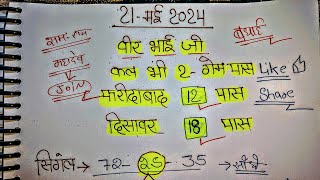 21-मई 2024
राम-राम
बधाई
वीर भाई जी
महादेव
कल भी 2- गेम पास Like
JOIN
फरीदाबाद 12 पास Share
दिसावर 18 पास
सिंगल → 72-25-35 →